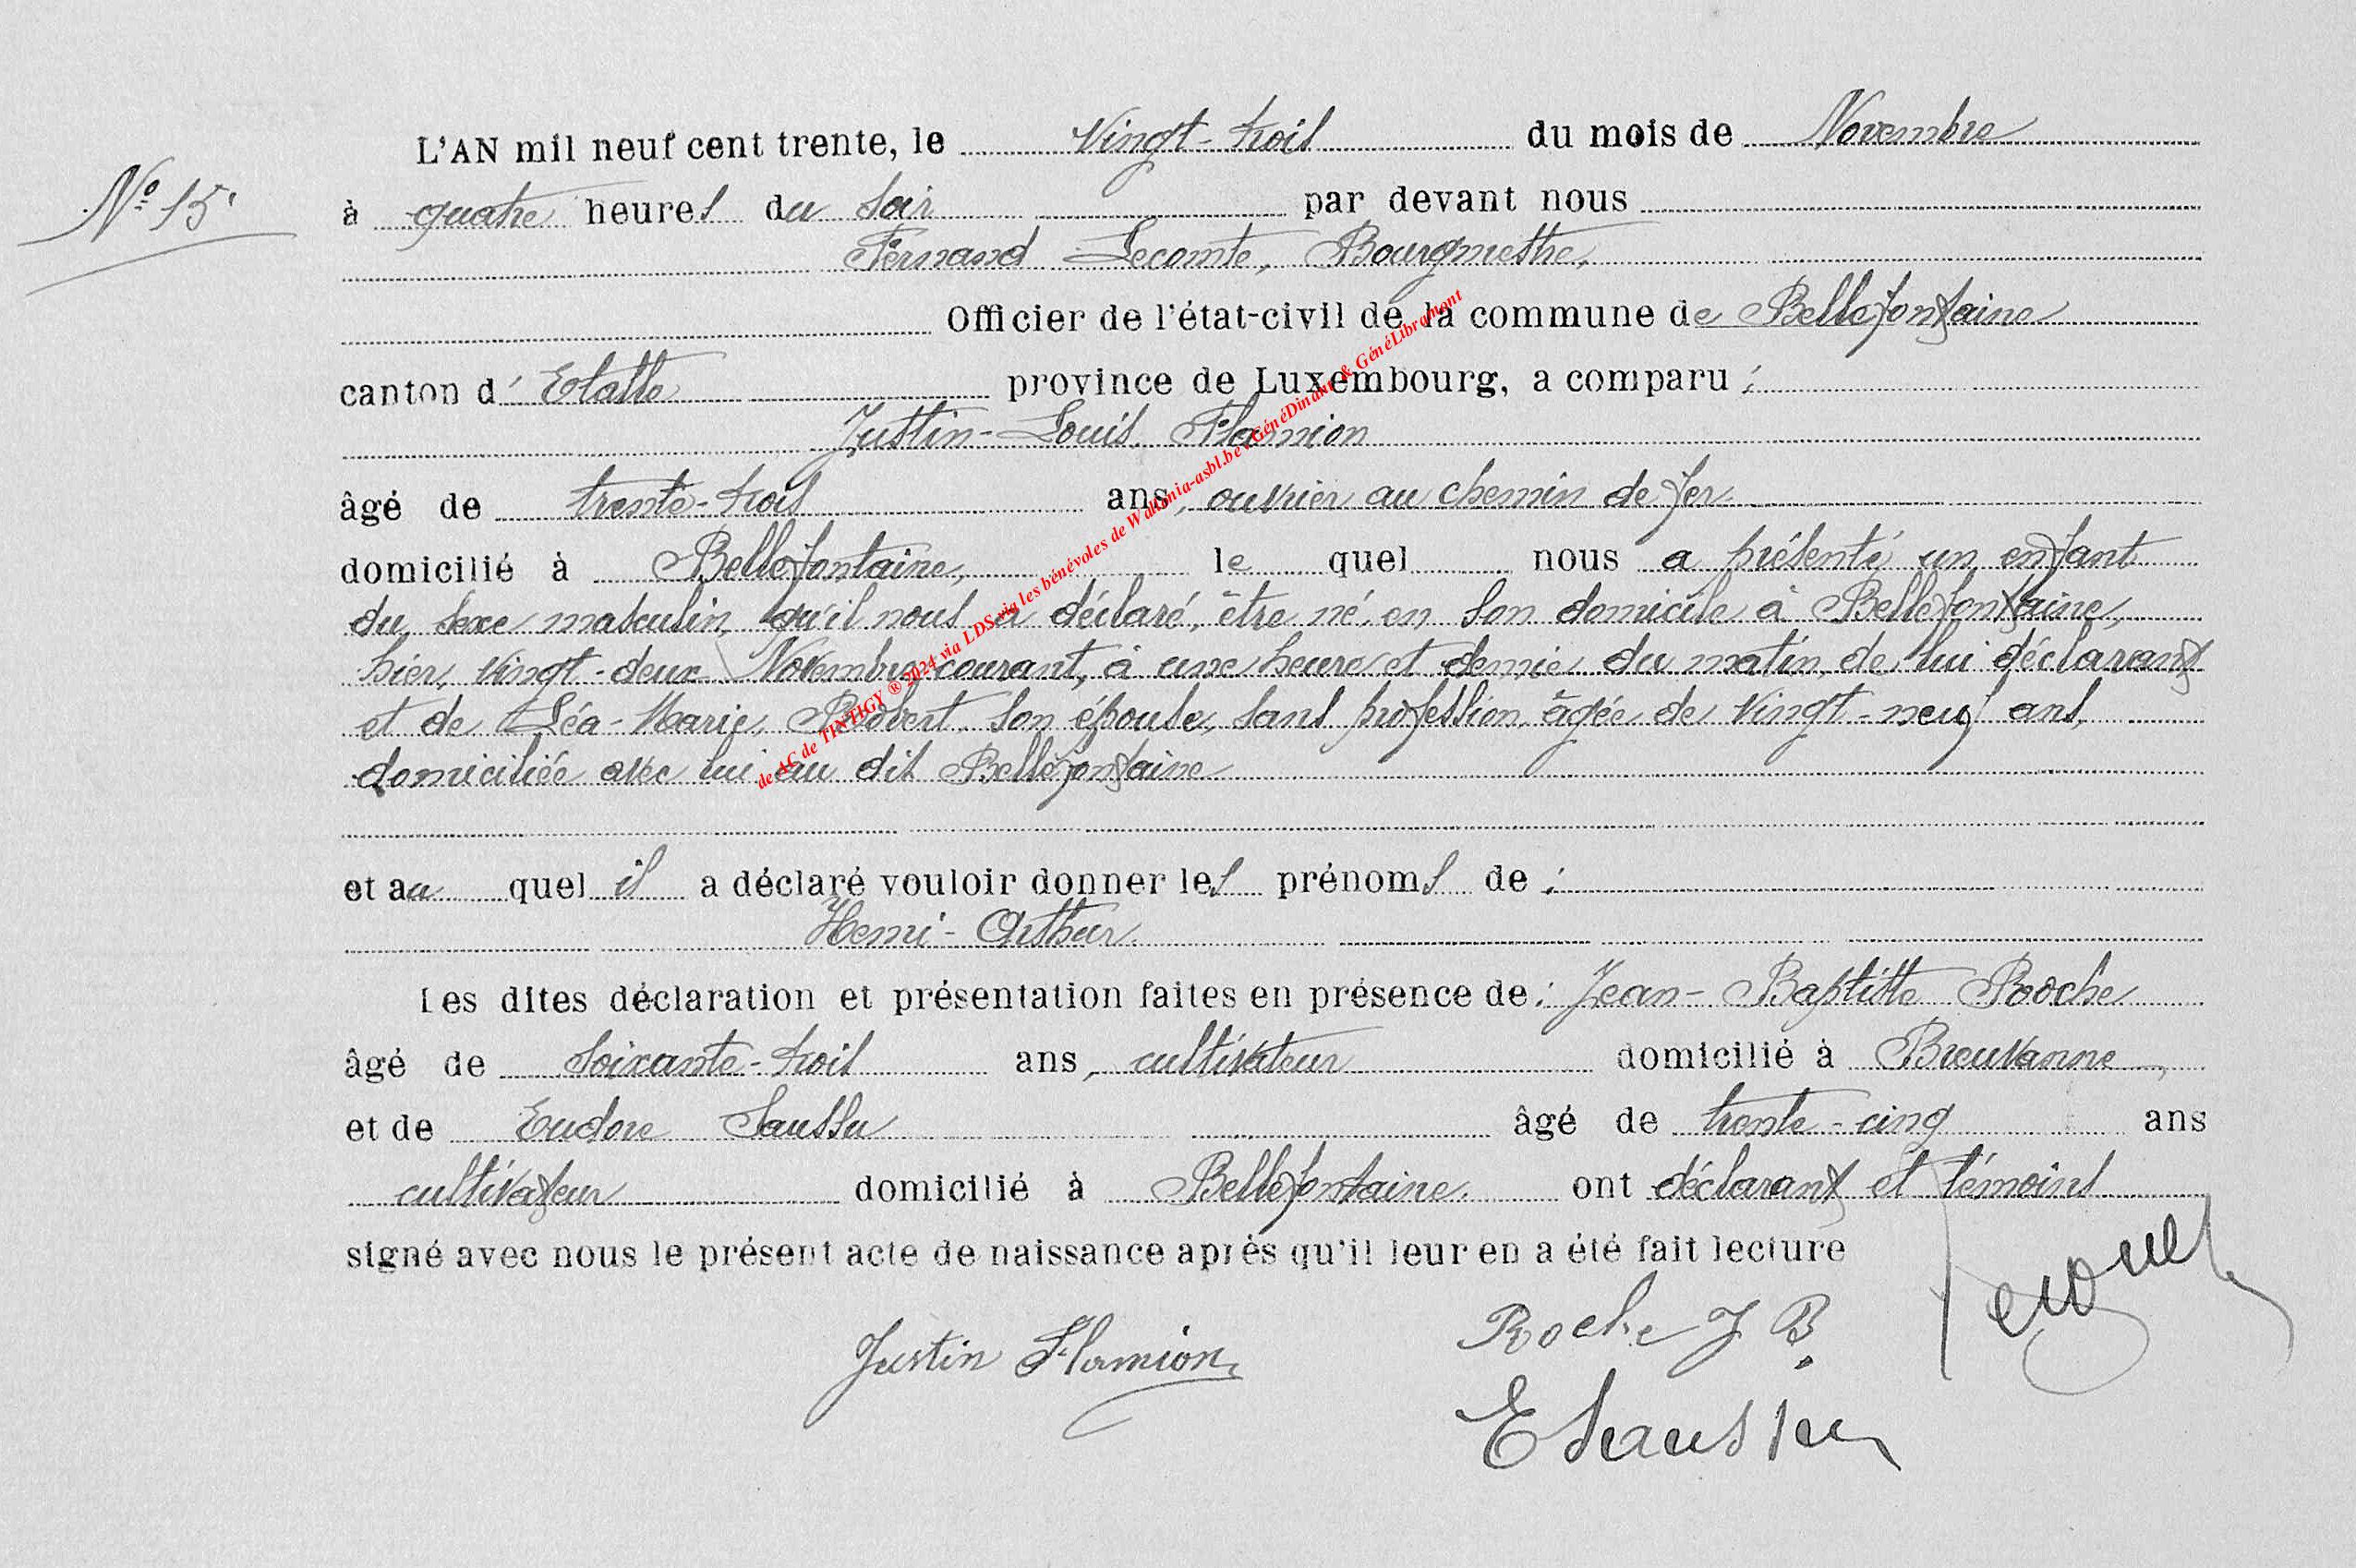 L'AN mil neuf cent trente, le Vingt-trois du mois de Novembre
N° 15
à quatre heures du soir par devant nous
Fernand Lecomte, Bourgmestre,
Officier de l'état-civil de la commune de Bellefontaine
canton d'Etalle province de Luxembourg, a comparu :
Justin-Louis Flamion
âgé de trente-trois ans, ouvrier au chemin de fer
domicilié à Bellefontaine, le quel nous a présenté un enfant
du sexe masculin, qu'il nous a déclaré, être né, en son domicile à Bellefontaine,
hier, vingt-deux Novembre courant, à une heure et demie du matin, de lui déclarant
et de Léa-Marie, Robert, son épouse, sans profession, âgée de vingt-neuf ans,
domiciliée avec lui au dit Bellefontaine
et au quel il a déclaré vouloir donner les prénoms de :
Henri-Arthur.
Les dites déclaration et présentation faites en présence de : Jean-Baptiste Roche
âgé de soixante-trois ans, cultivateur domicilié à Breuvanne,
et de Eudore Saussu âgé de trente-cinq ans
cultivateur domicilié à Bellefontaine. ont déclarant et témoins
signé avec nous le présent acte de naissance après qu'il leur en a été fait lecture
Justin Flamion
Roche J B.
E Saussu
de AC de TINTIGY ® 2024 via LDS via les bénévoles de Wallonia-asbl.be - GénéDinant & GénéLibramont